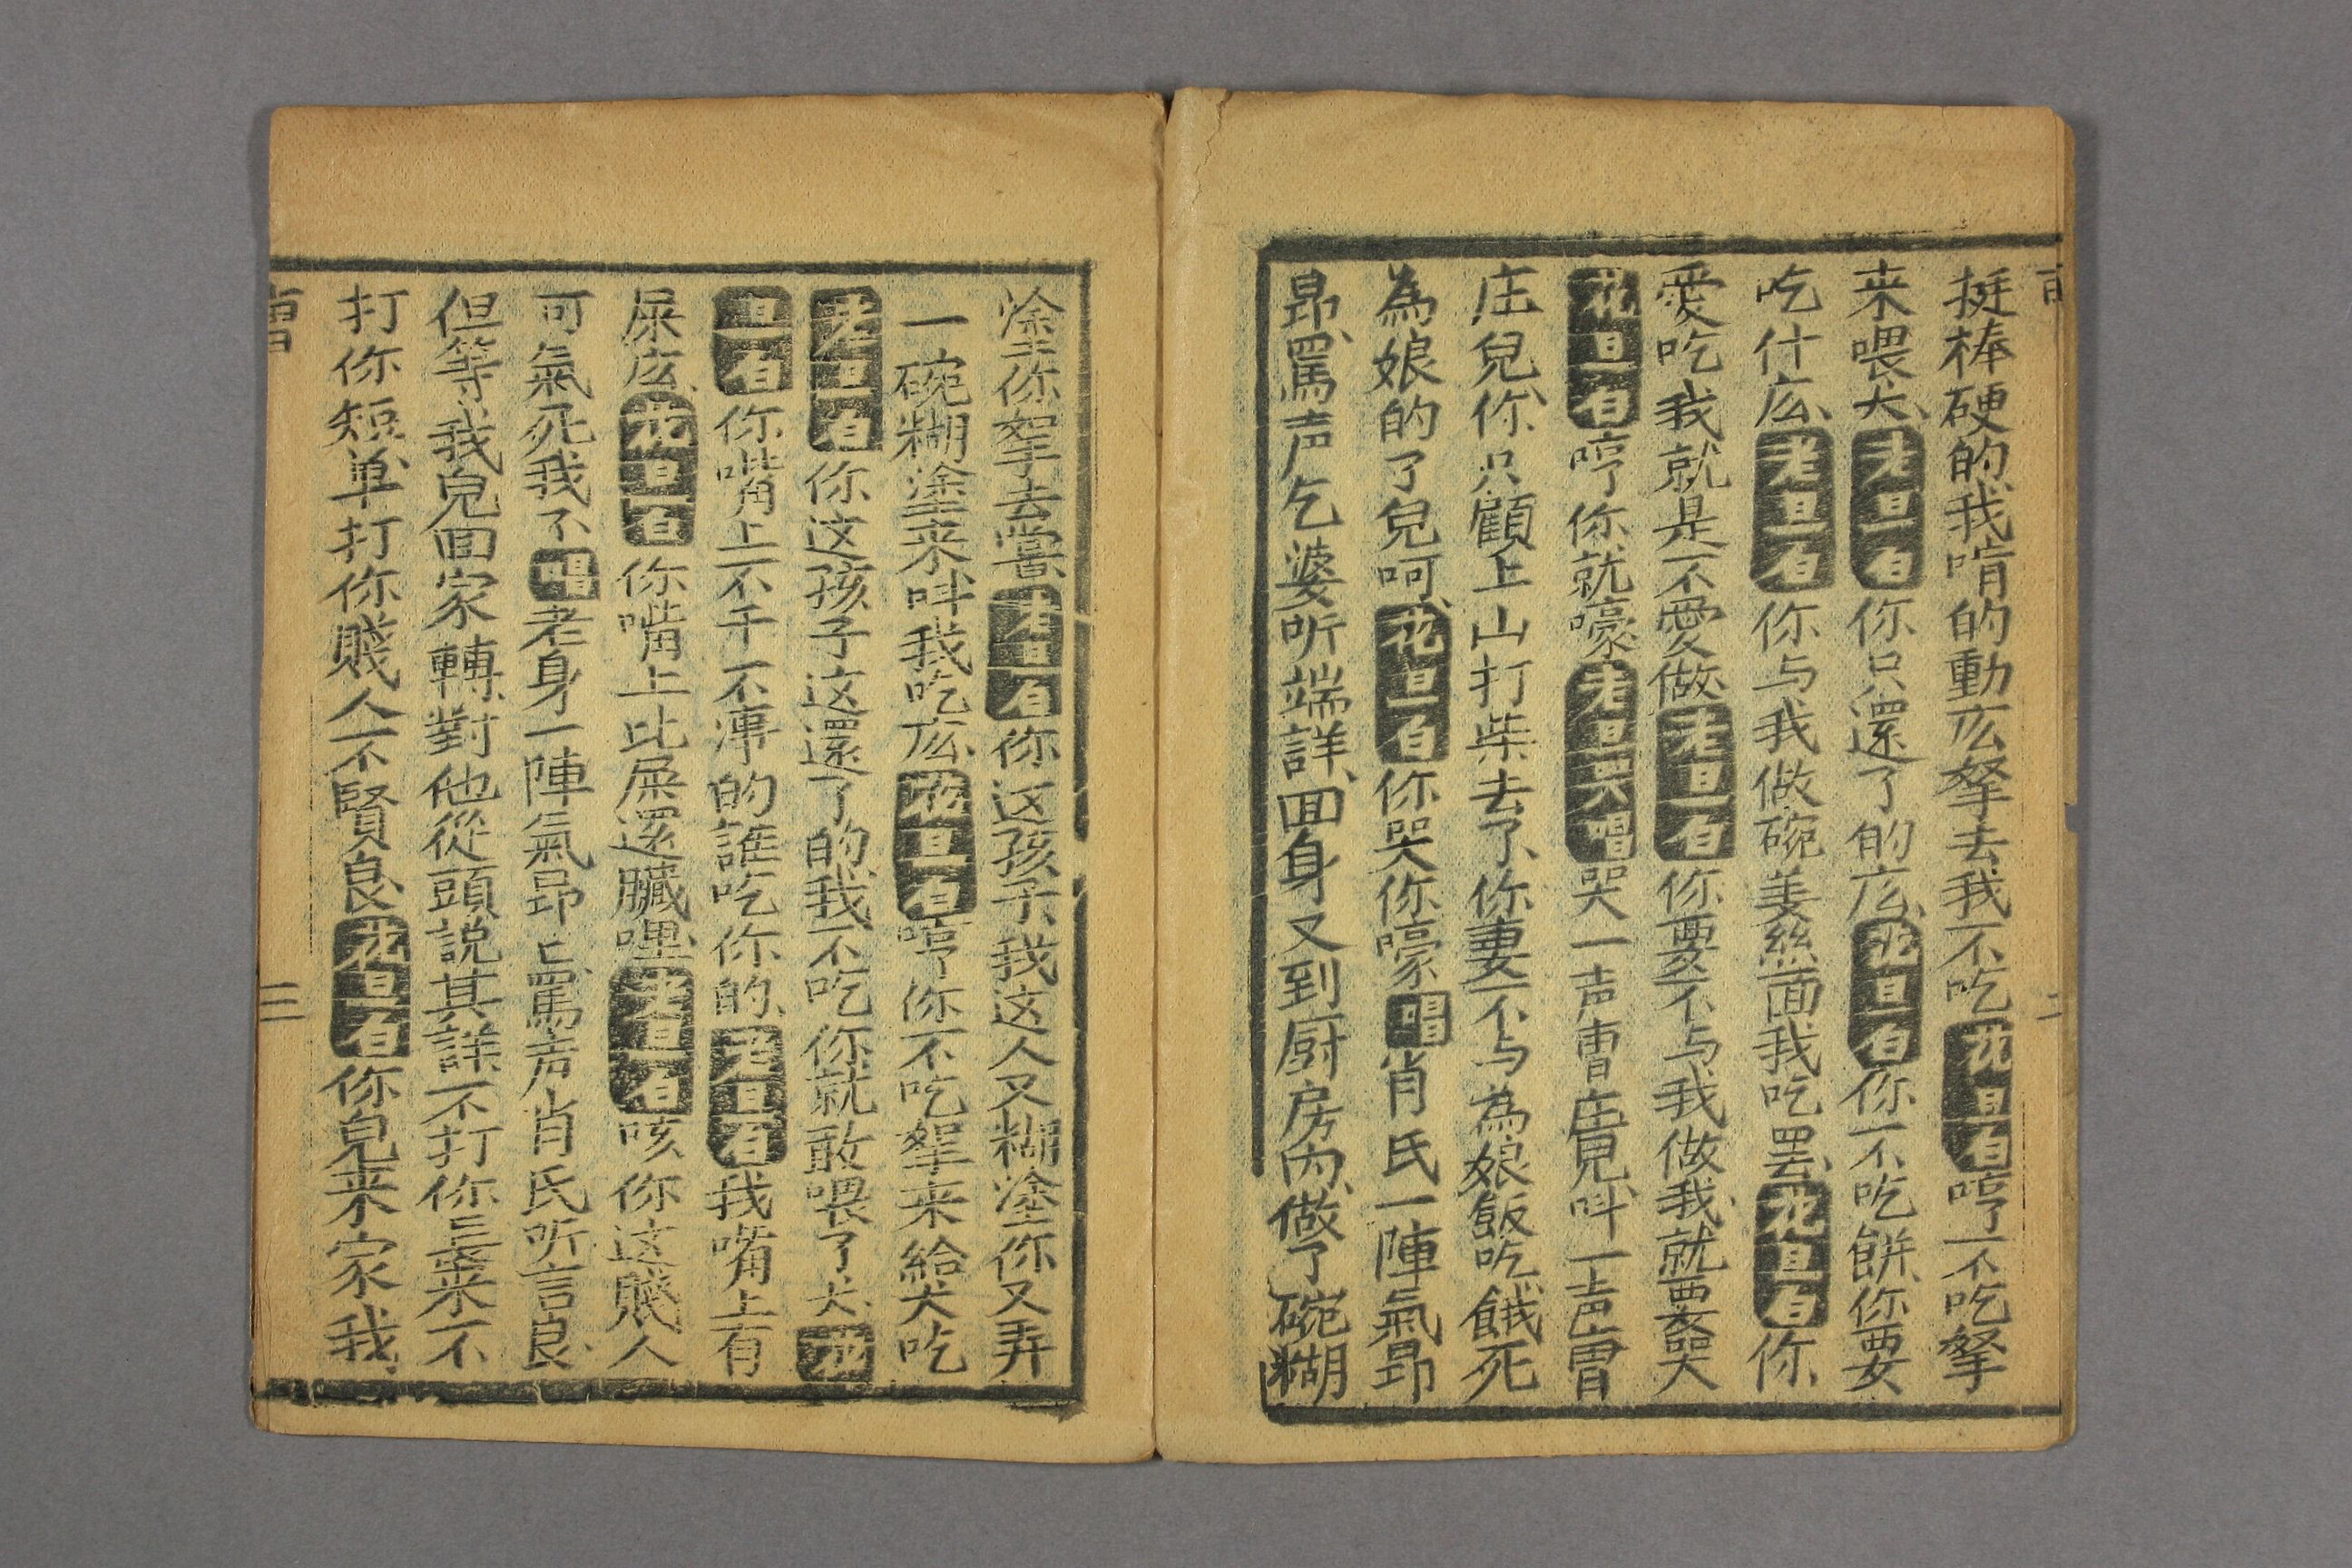 挺棒硬的我啃的動庅拏去我不吃花旦白哼不吃拏
来喂犬老旦白你只還了的庅花旦白你不吃餅你要
吃什庅老旦白你与我做碗姜絲面我吃罢花旦白你
愛吃我就是不愛做老旦白你要不与我做我就要哭
花旦白哼你就嚎老旦哭唱哭一声曹庄兒呌一声曹
庄兒你只顧上山打柴去了你妻不与為娘飯吃餓死
為娘的了兒呵花旦白你哭你嚎唱肖氏一陣氣昂
昂罵声乞婆听端詳回身又到厨房内做了碗糊
塗你拏去嘗老旦白你这孩子我这人又糊塗你又弄
一碗糊塗来呌我吃庅花旦白哼你不吃拏来給犬吃
老旦白你这孩子这還了的我不吃你就敢喂了犬花
旦白你嘴上不干不凈的誰吃你的老旦白我嘴上有
屎庅花旦白你嘴上比屎還臟哩老旦白咳你这賤人
可氣死我不唱老身一陣氣昂上罵声肖氏听言良
但等我兒回家轉對他從頭説其詳不打你三来不
打你短单打你賤人不賢良花旦白你兒来家我
曹
三